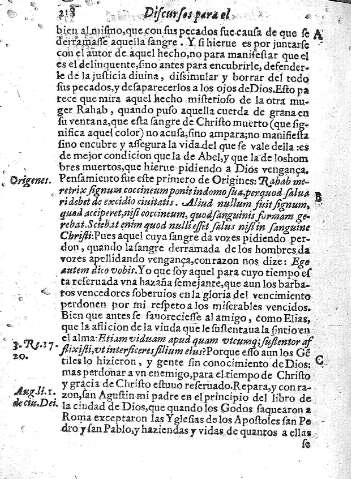 218 Discursos para el
bien al mismo, que con sus pecados fue causa de que se A
derramasse aquella sangre. Y si hierue es por juntarse
con el autor de aquel hecho, no para manifestar que el
es el delinquente, sino antes para encubrirle, defender-
le de la justicia diuina, dissimular y borrar del todo
sus pecados, y desaparecerlos a los ojos de Dios. Esto pa
rece que mira aquel hecho misterioso de la otra mu
ger Rahab, quando puso aquella cuerda de grana en
su ventana, que esta sangre de Christo muerto (que sig
nifica aquel color) no acusa, sino ampara; no manifiesta
sino encubre y assegura la vida del que se vale della: es
de mejor condicion que la de Abel, y que la de los hom
bres muertos, que hierue pidiendo a Dios vengança.
Origenes. Pensamiento fue este primero de Origines: Rahab me
retrix signum coccineum ponit in domo sua, per quod salua B
ri debet de excidio ciuitatis. Aliud nullum fuit signum,
quod acciperet, nisi coccineum, quod sanguinis formam ge
rebat. Sciebat enim quod nulli esset salus nisi in sanguine
Christi: Pues aquel cuya sangre da vozes pidiendo per
don, quando la sangre derramada de los hombres da
vozes apellidando vengança, con razon nos dize: Ego
autem dico vobis. Yo que soy aquel para cuyo tiempo es
ta reseruada vna hazaña semejante, que aun los barba
ros vencedores soberuios en la gloria del vencimiento
perdonen por mi respeto a los miserables vencidos.
Bien que antes se fauoreciesse al amigo, como Elias,
que la aflicion de la viuda que le sustentaua la sintio en
3. Rs. 17. el alma: Etiam viduam apud quam vtcumq; sustentor af
20. flixisti, et interficeres filium eius? Porque esso aun los Gē
tiles lo hizieron, y gente sin conocimiento de Dios: C
mas perdonar a vn enemigo, para el tiempo de Christo
y gracia de Christo estuuo reseruado. Repara, y con ra-
Aug. li. 1. zon, san Agustin mi padre en el principio del libro de
de ciu. Dei. la ciudad de Dios, que quando los Godos saquearon a
Roma exceptaron las Yglesias de los Apostoles san Pe
dro y san Pablo, y haziendas y vidas de quantos a ellas
se